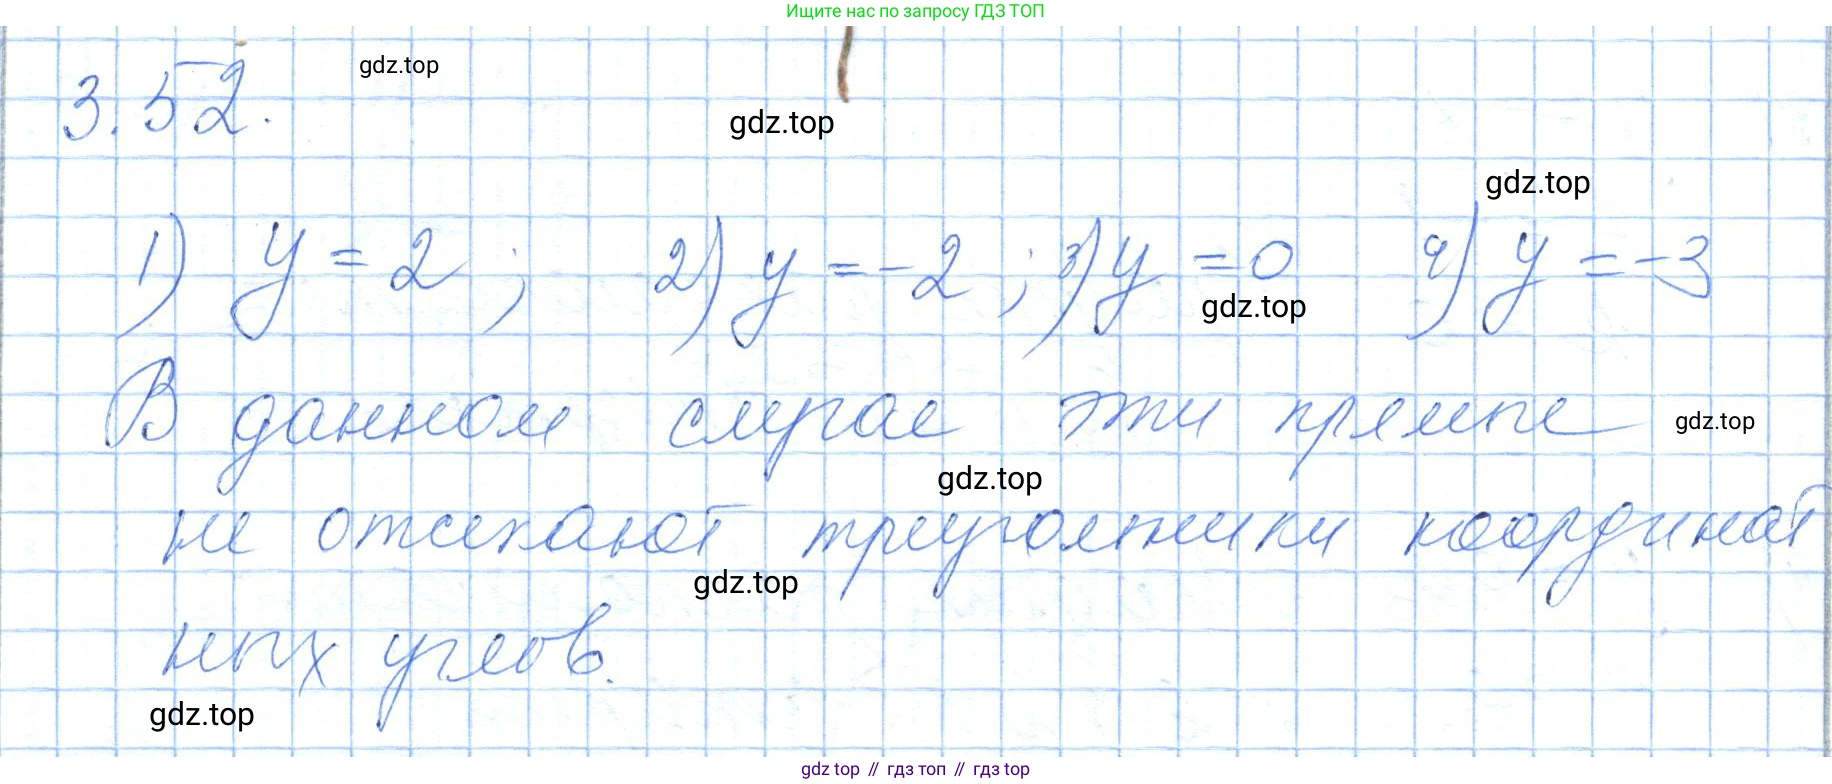 Ищите нас по запросу ГДЗ ТОП
3.52.
gdz.top
gdz.top
gdz.top
1) y = 2 ; 2) y = -2 ; 3) y = 0 4) y = -3
gdz.top
В данном случае эти прямые
gdz.top
gdz.top
не отсекают треугольники координат
gdz.top
ных углов.
gdz.top
gdz top // гдз топ // гдз top